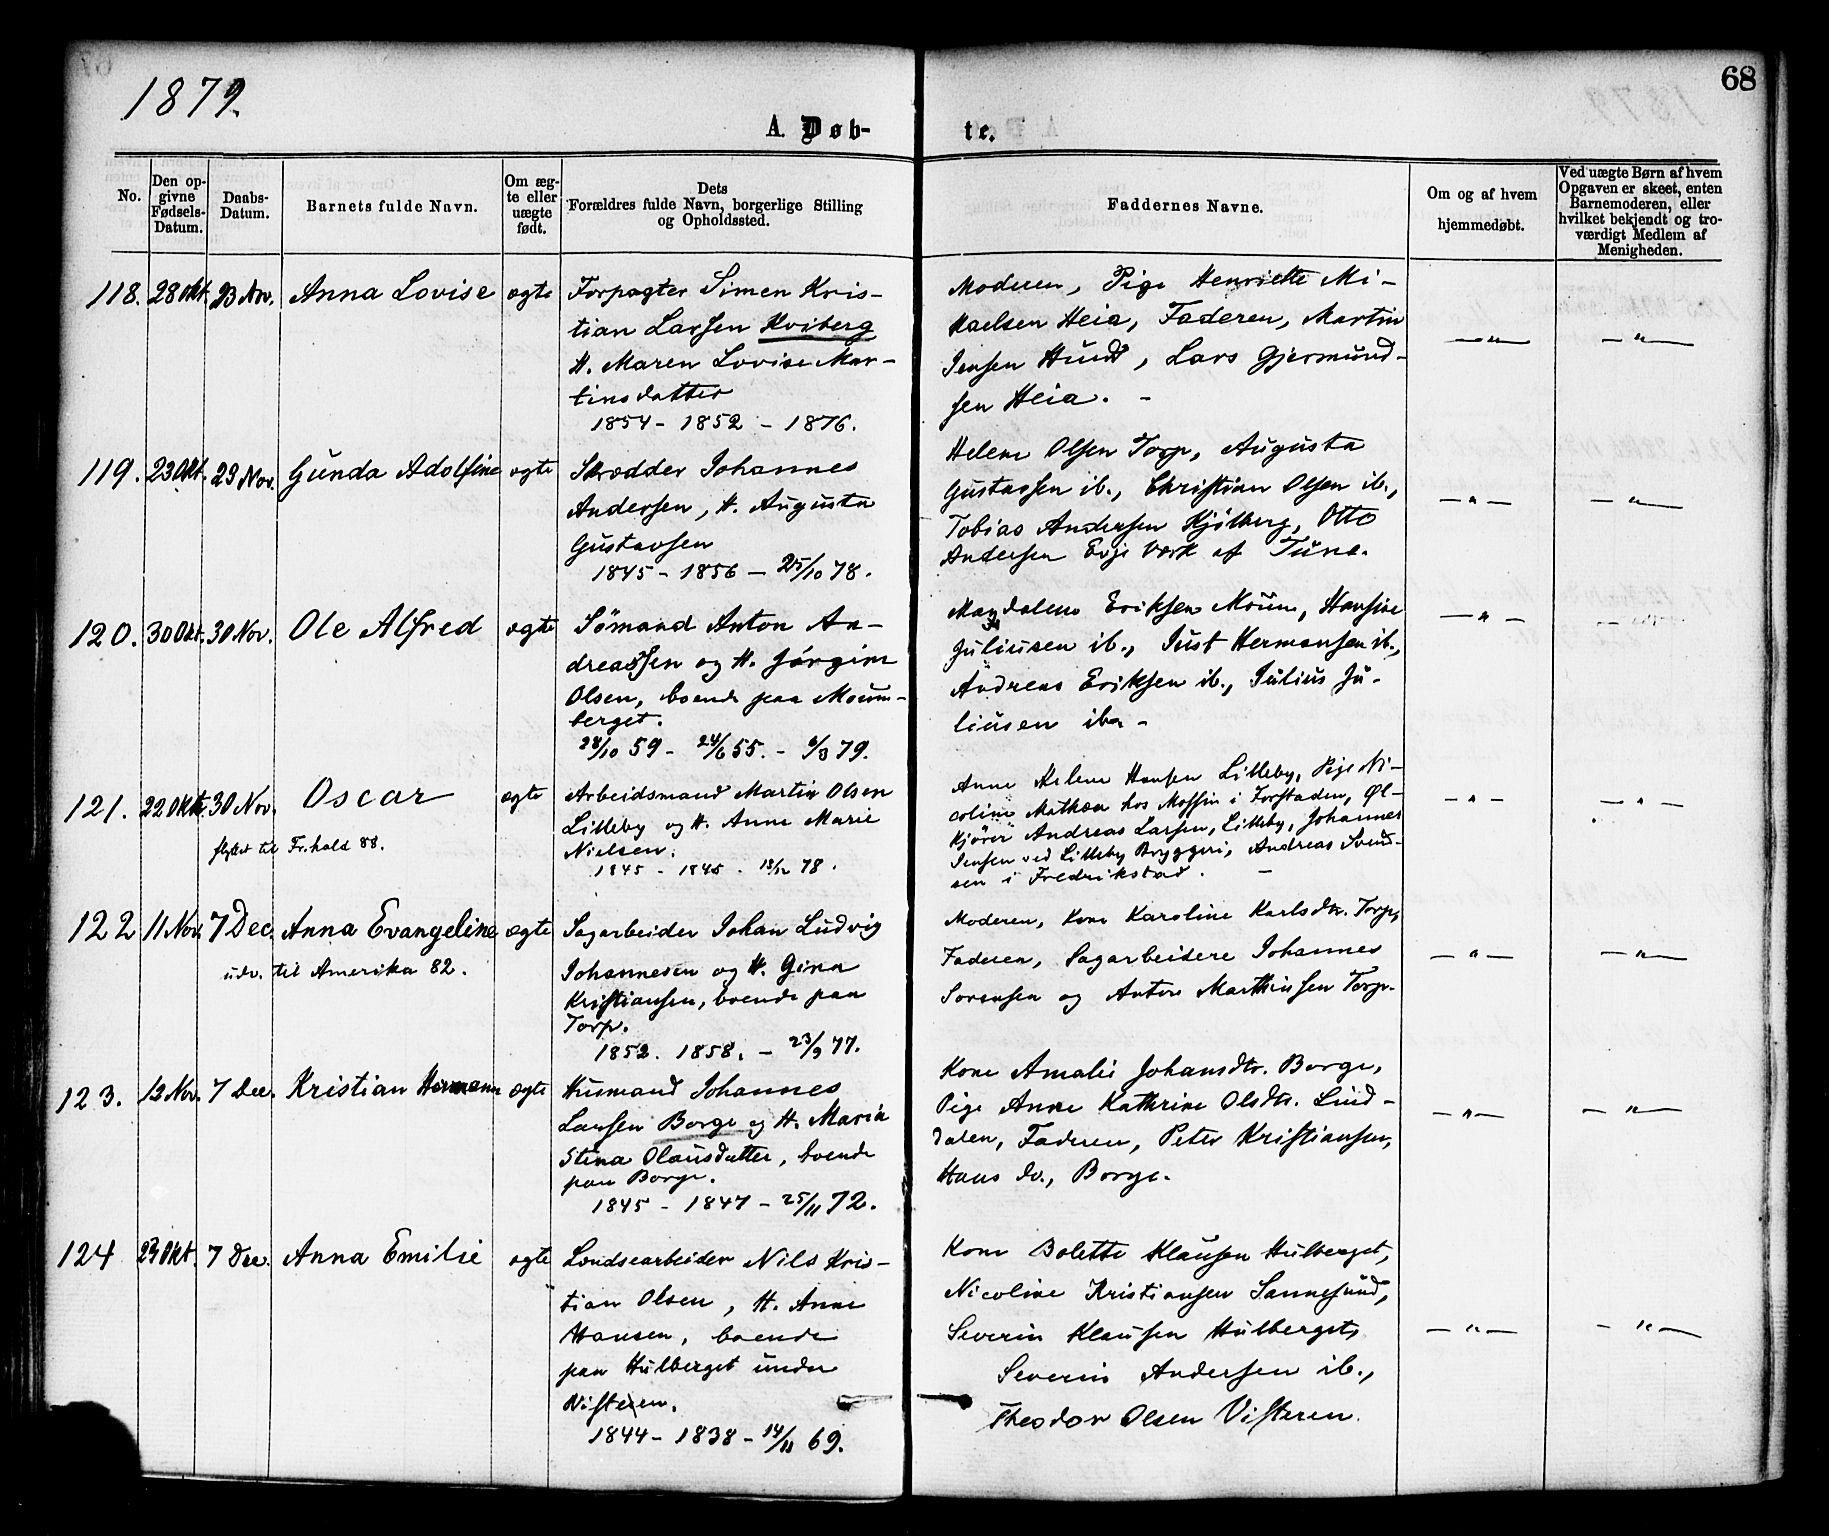 1879.
68
A. Døb-
te.
No.
Den op-
givne
Fødsels-
Datum.
Daabs-
Datum.
Barnets fulde Navn.
Om æg-
te eller
uægte
født.
Dets
Forældres fulde Navn, borgerlige Stilling
og Opholdssted.
Faddernes Navne.
Om og af hvem
hjemmedøbt.
Ved uægte Børn af hvem
Opgaven er skeet, enten
Barnemoderen, eller
hvilket bekjendt og tro-
værdigt Medlem af
Menigheden.
118. 28 Okt. 23 Nov. Anna Lovise ægte
Forpagter Simen Kris-
tian Larsen Kviberg
H. Maren Lovise Mar-
tinsdatter
1854 - 1852 - 1876.
Moderen, Pige Henriette Mi-
kaelsen Heia, Faderen, Martin
Jensen Hundt, Lars Gjermund-
sen Heia. -
— " —
— " —
119. 23 Okt. 23 Nov. Gunda Adolfine ægte
Skrædder Johannes
Andersen, H. Augusta
Gustavsen
1845 - 1856 - 25/10 78.
Helene Olsen Torp, Augusta
Gustavsen ib., Christian Olsen ib.,
Tobias Andersen Kjølberg, Otto
Andersen Evje Værk af Tune.
— " —
— " —
120. 30 Okt. 30 Nov. Ole Alfred ægte
Sømand Anton An-
dreassen og H. Jørgine
Olsen, boende paa Moum-
berget.
28/10 59 - 24/6 55. - 6/3 79.
Magdalene Eriksen Moum, Hansine
Juliusen ib., Just Hermansen ib.,
Andreas Eriksen ib., Julius Ju-
liusen ib. -
— " —
— " —
121. 22 Okt. 30 Nov. Oscar ægte
flyttet til Fr.hald 88.
Arbeidsmand Martin Olsen
Lilleby og H. Anne Marie
Nielsen.
1845 - 1845 - 18/12 78.
Anne Helene Hansen Lilleby, Pige Ni-
coline Mathea hos Mossin i Forstaden, Øl-
kjører Andreas Larsen, Lilleby, Johannes
Jensen ved Lilleby Bryggeri, Andreas Svend-
sen i Fredrikstad. -
— " —
— " —
122 11 Nov. 7 Dec. Anna Evangeline ægte
udv. til Amerika 82.
Sagarbeider Johan Ludvig
Johannesen og H. Gina
Kristiansen, boende paa
Torp.
1852. 1858. - 23/9 77.
Moderen, Kone Karoline Karlsdtr. Torp,
Faderen, Sagarbeidere Johannes
Sørensen og Anton Marthinsen Torp.
— " —
— " —
123. 12 Nov. 7 Dec. Kristian Hermann ægte
Husmand Johannes
Larsen Borge og H. Maria
Stina Olausdatter, boende
paa Borge.
1845 - 1847 - 25/11 72.
Kone Amalie Johansdtr. Borge,
Pige Anne Kathrine Olsdtr. Lind-
dalen, Faderen, Peter Kristiansen,
Hans do., Borge.
— " —
— " —
124 23 Okt. 7 Dec. Anna Emilie ægte
Londsearbeider Nils Kris-
tian Olsen, H. Anne
Hansen, boende
paa Hulberget under
Visteren.
1844 - 1838 - 14/11 69.
Kone Bolette Klausen Hulberget,
Nicoline Kristiansen Sannesund,
Severin Klausen Hulberget,
Severin Andersen ib.,
Theodor Olsen Visteren.
— " —
— " —